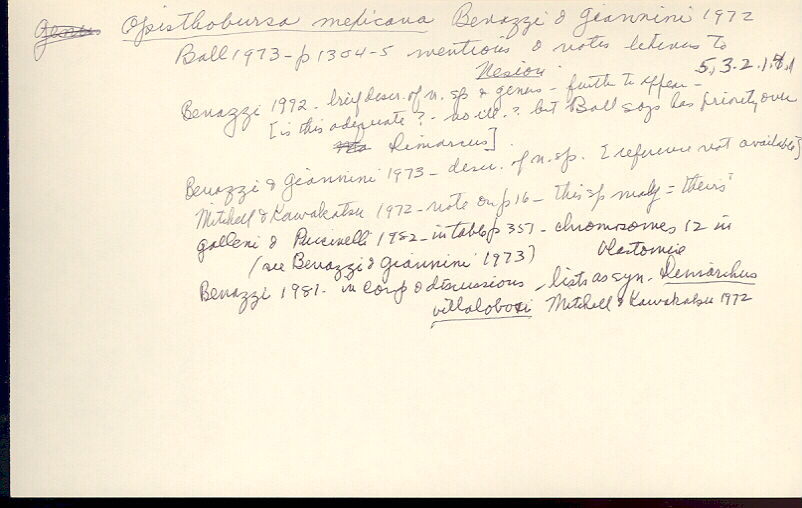 Genus Opisthobursa mexicana Benazzi & Giannini 1972
Ball 1973 - p 1304-5 mentions & notes
Nesion
5.3.2.1.8.1
Benazzi 1972 - brief descr. of n. sp & genus - further to appear -
[is this adequate? - no ill.? but Ball says has priority over
Dimarcus]
Benazzi & Giannini 1973 - descr. of n. sp. [reference not available]
Mitchell & Kawakatsu 1972 - note on p 16 - this sp may = theirs
Galleni & Puccinelli 1982 - in table p 357 - chromosomes 12 in
blastomere
(see Benazzi & Giannini 1973)
Benazzi 1981 - in comp & discussions - lists as syn. Demarchus
villalobosi Mitchell & Kawakatsu 1972